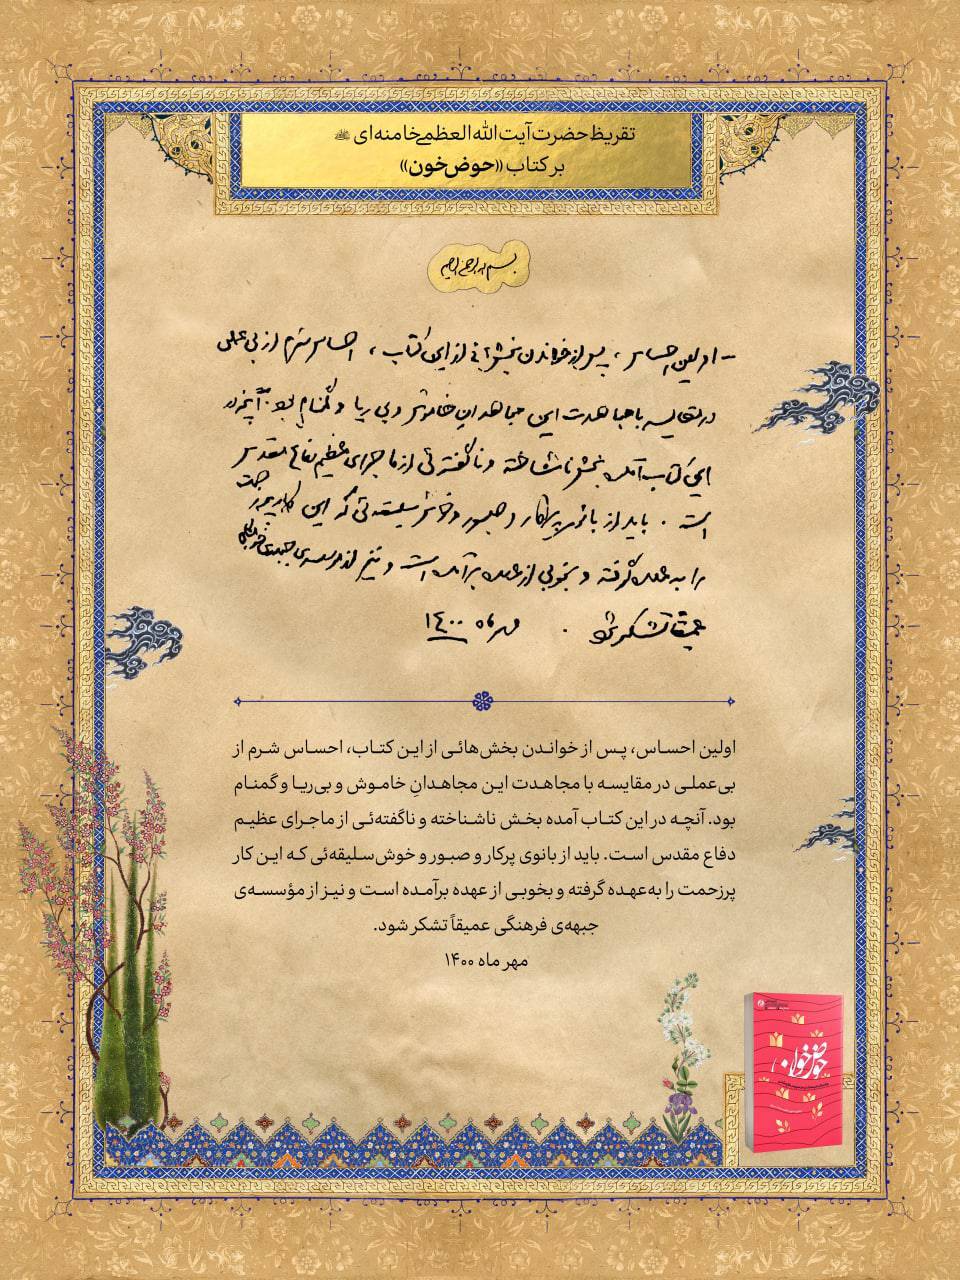 تقریظ حضرت آیت الله العظمی خامنه‌ای
بر کتاب «حوض خون»
بسم الله الرحمن الرحیم
- اولین احساس، پس از خواندن بخش‌هائی از این کتاب، احساس شرم از بی‌عملی
در مقایسه با مجاهدت این مجاهدان خاموش و بی‌ریا و گمنام بود. آنچه در
این کتاب آمده بخش ناشناخته و ناگفته‌ئی از ماجرای عظیم دفاع مقدس
است. باید از بانوی پرکار و صبور و خوش‌سلیقه‌ئی که این کار پرزحمت
را به عهده گرفته و بخوبی از عهده برآمده است و نیز از مؤسسه‌ی جبهه‌ی فرهنگی
عمیقاً تشکر شود. مهر ماه ۱۴۰۰
اولین احساس، پس از خواندن بخش‌هائی از این کتاب، احساس شرم از
بی‌عملی در مقایسه با مجاهدت این مجاهدانِ خاموش و بی‌ریا و گمنام
بود. آنچه در این کتاب آمده بخش ناشناخته و ناگفته‌ئی از ماجرای عظیم
دفاع مقدس است. باید از بانوی پرکار و صبور و خوش‌سلیقه‌ئی که این کار
پرزحمت را به‌عهده گرفته و بخوبی از عهده برآمده است و نیز از مؤسسه‌ی
جبهه‌ی فرهنگی عمیقاً تشکر شود.
مهر ماه ۱۴۰۰
حوض خون